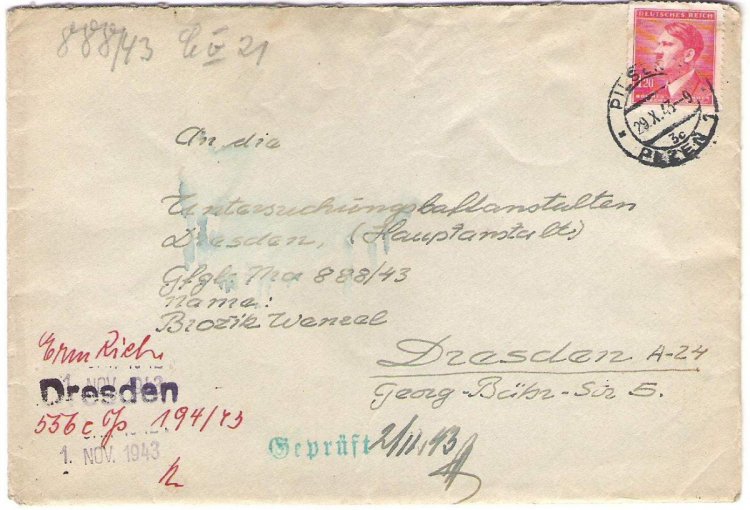 888/43 21
DEUTSCHES REICH
PILSEN
29.X.43-9
3c
PLZEN 1
An die
Untersuchungshaftanstalten
Dresden, (Hauptanstalt)
Gfgb Na 888/43
name:
Brožik Wenzel
Dresden A-24
Georg-Bähr-Str 5.
Erm Rich.
1. NOV. 1943
Dresden
556 c Js 194/43
1. NOV. 1943
Geprüft 2/11.43